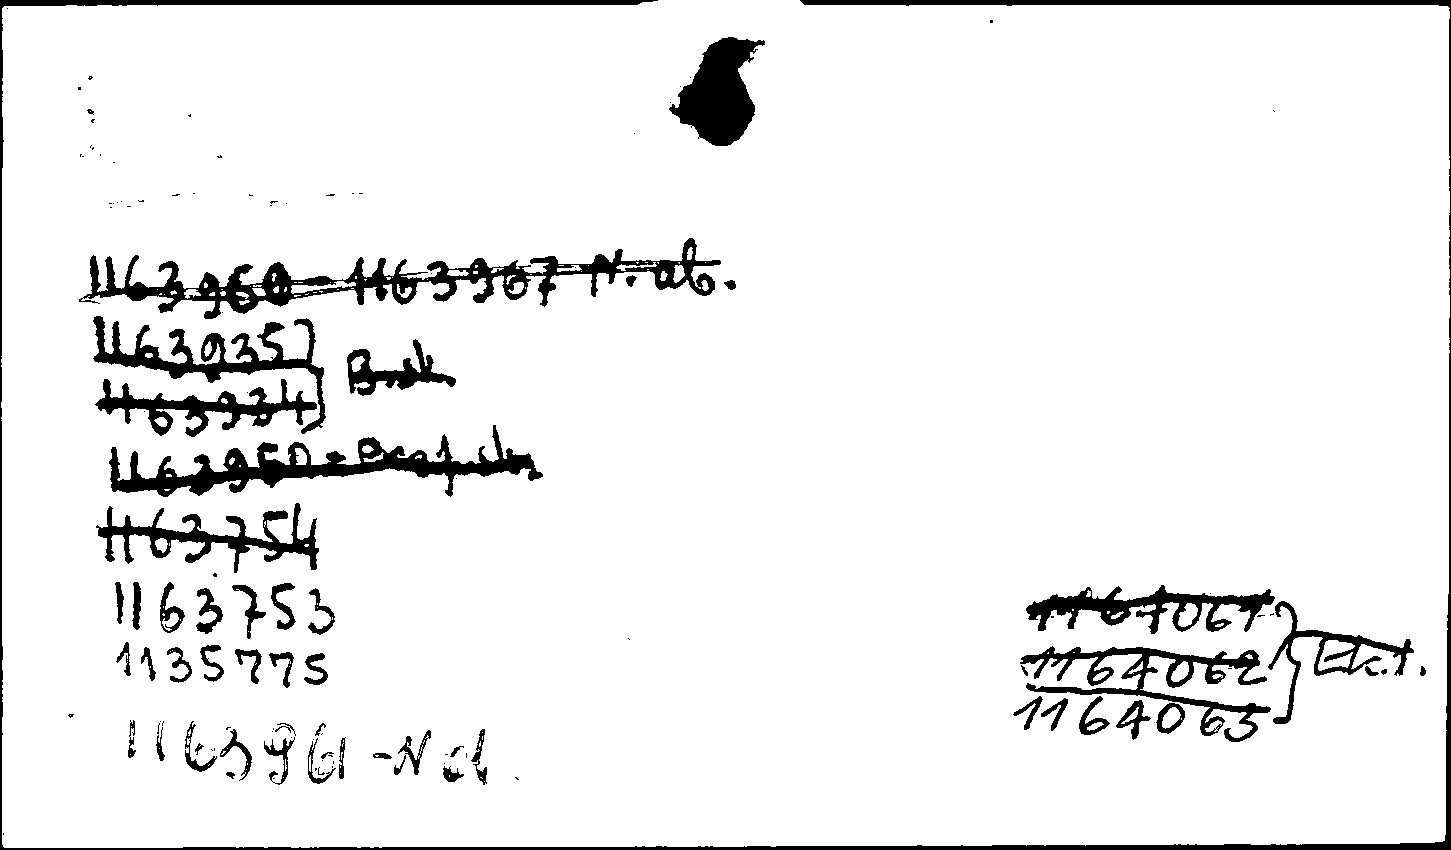 1163960 - 1163967 N. ab.
1163935
1163934
1163950 -
1163754
1163753
1135775
1163961 - N ab
1164061
1164062
1164063